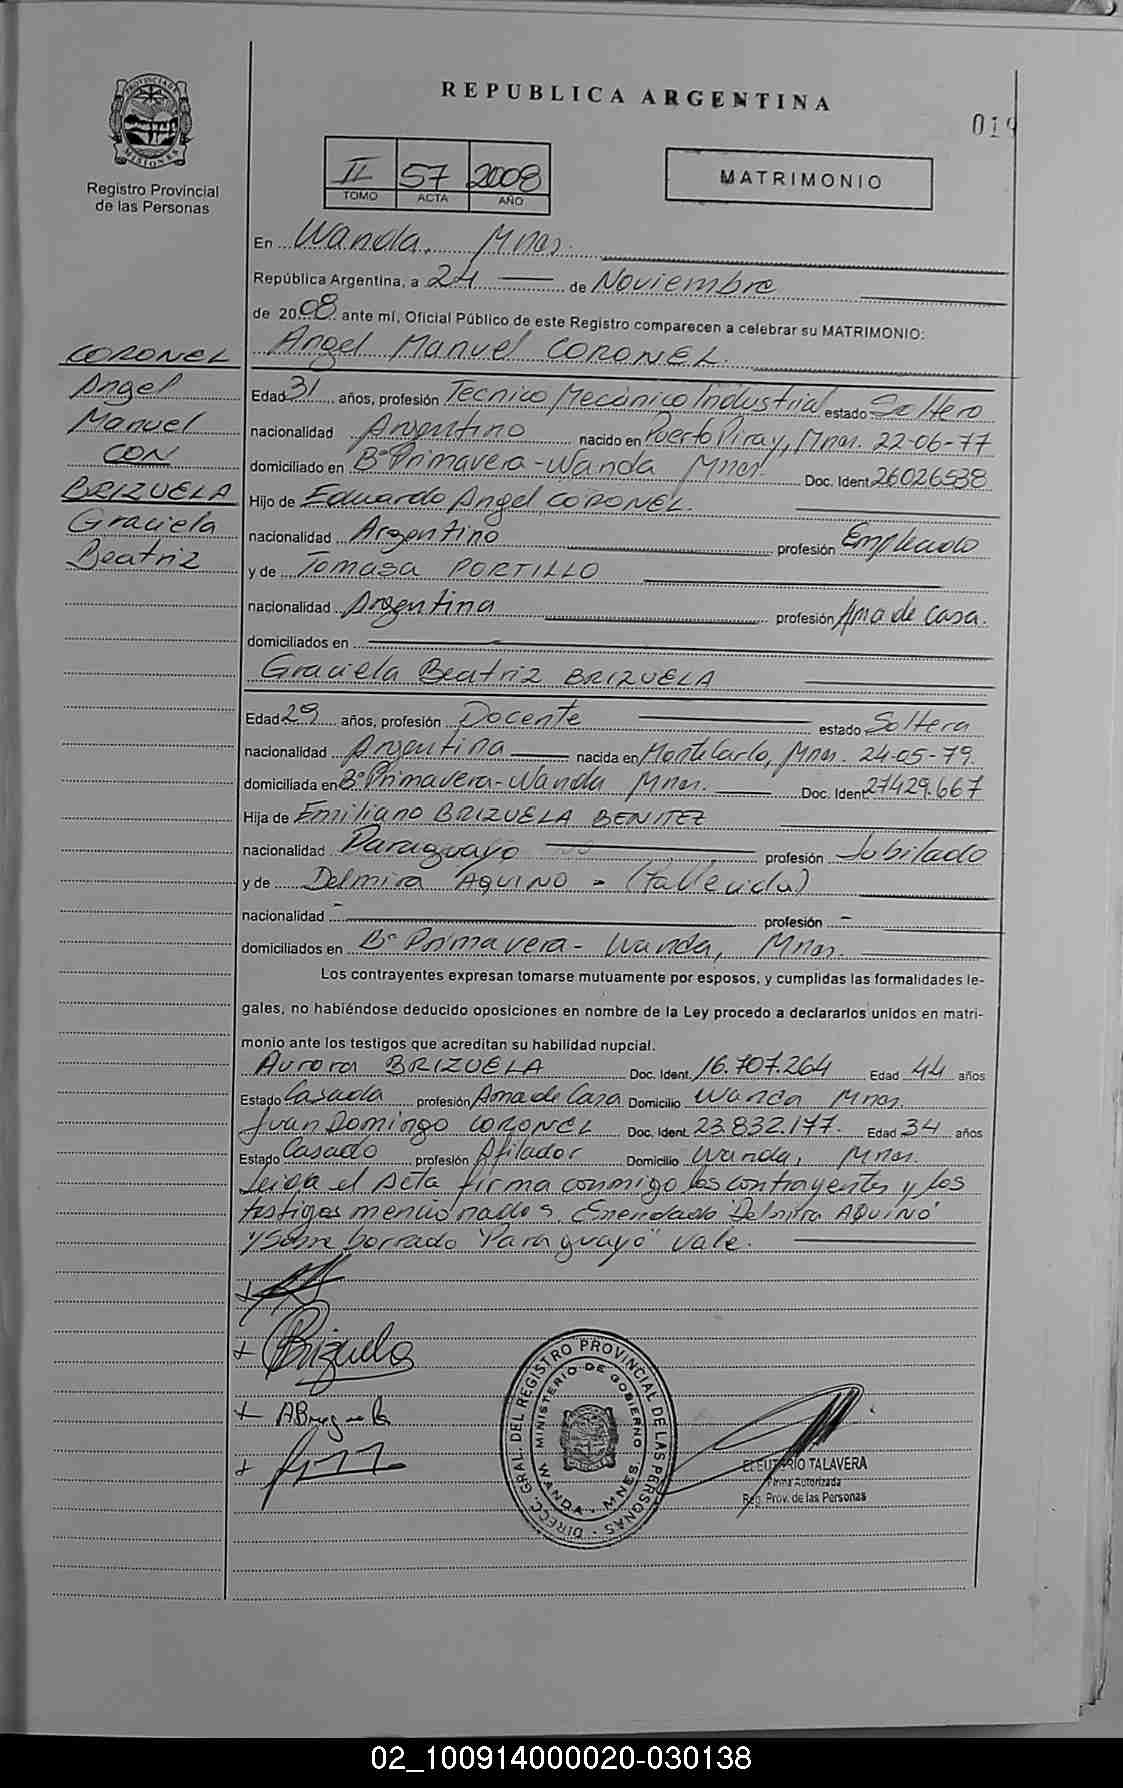 REPUBLICA ARGENTINA
019
PROVINCIA DE MISIONES
Registro Provincial
de las Personas
II 57 2008
TOMO ACTA AÑO
MATRIMONIO
En Wanda, Mnes.
República Argentina, a 24 de Noviembre
de 2008 ante mí, Oficial Público de este Registro comparecen a celebrar su MATRIMONIO:
Angel Manuel CORONEL.
CORONEL
Angel
Manuel
CON
BRIZUELA
Graciela
Beatriz
Edad 31 años, profesión Tecnico Mecánico Industrial estado Soltero
nacionalidad Argentino nacido en Puerto Piray, Mnes. 22-06-77
domiciliado en Bº Primavera-Wanda Mnes. Doc. Ident 26026538
Hijo de Eduardo Angel CORONEL.
nacionalidad Argentino profesión Empleado
y de Tomasa PORTILLO
nacionalidad Argentina profesión Ama de casa.
domiciliados en
Graciela Beatriz BRIZUELA
Edad 29 años, profesión Docente estado Soltera
nacionalidad Argentina nacida en Montecarlo, Mnes. 24-05-79.
domiciliada en Bº Primavera-Wanda Mnes. Doc. Ident 27429.667
Hija de Emiliano BRIZUELA BENITEZ
nacionalidad Paraguayo profesión Jubilado
y de Delmira AQUINO - (fallecida)
nacionalidad - profesión -
domiciliados en Bº Primavera - Wanda, Mnes.
Los contrayentes expresan tomarse mutuamente por esposos, y cumplidas las formalidades le-
gales, no habiéndose deducido oposiciones en nombre de la Ley procedo a declararlos unidos en matri-
monio ante los testigos que acreditan su habilidad nupcial.
Aurora BRIZUELA Doc. Ident. 16.707.264 Edad 44 años
Estado Casada profesión Ama de Casa Domicilio Wanda Mnes.
Juan Domingo CORONEL Doc. Ident. 23.832.177. Edad 34 años
Estado Casado profesión Afilador Domicilio Wanda, Mnes.
leida el Acta firma conmigo los contrayentes y los
testigos mencionados. Enmendado "Delmira AQUINO"
y Sobre borrado "Paraguayo" vale.
Brizuela
ABrizuela
DIRECC. GRAL. DEL REGISTRO PROVINCIAL DE LAS PERSONAS
MINISTERIO DE GOBIERNO
WANDA - MNES.
ELEUTERIO TALAVERA
Firma Autorizada
Reg. Prov. de las Personas
02_100914000020-030138